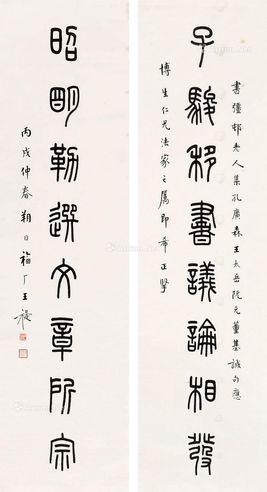 書彊邨老人集孔廣森王太岳阮元董基誠句應
子駿移書議論相發
博生仁兄法家之屬即希正
昭明勒選文章所宗
丙戌仲春朔日福厂王禔